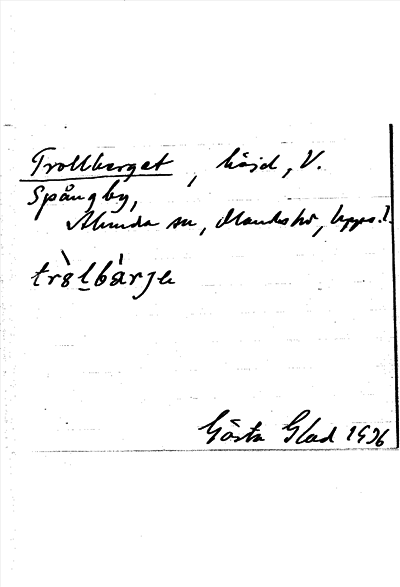 Trollberget, höjd, V.
Spångby,
Alunda sn, Olands hd, Upps. l.
tròlbàrje
Gösta Glad 1936